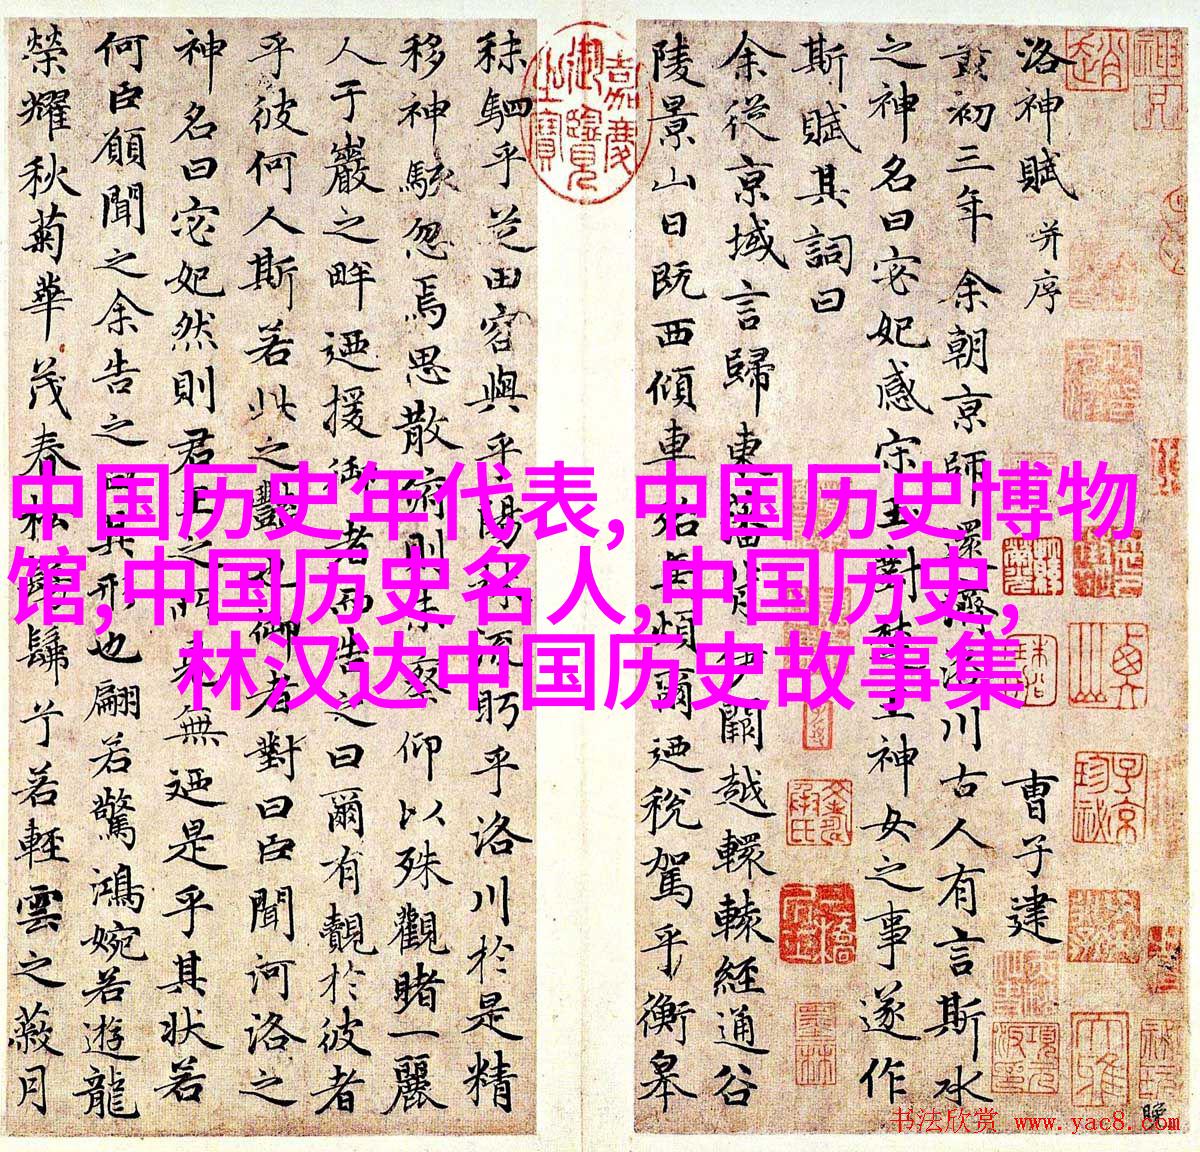 洛神賦 并序 曹子建
黃初三年余朝京師還濟洛川古人有言斯水
之神名曰宓妃感宋玉對楚王神女之事遂作
斯賦其詞曰
余從京域言歸東藩背伊闕越轘轅經通谷
陵景山日既西傾車殆馬煩爾迺稅駕乎衡皋
秣駟乎芝田容與乎陽林流眄乎洛川於是精
移神駭忽焉思散俯則未察仰以殊觀睹一麗
人于巖之畔迺援御者而告之曰爾有覿於彼者
乎彼何人斯若此之豔也御者對曰臣聞河洛之
神名曰宓妃然則君王之所見無迺是乎其狀若
何臣願聞之余告之曰其形也翩若驚鴻婉若遊龍
榮耀秋菊華茂春松髣髴兮若輕雲之蔽月
嘉慶御覽之寶
中国历史年代表,中国历史博物
馆,中国历史名人,中国历史,
林汉达中国历史故事集
书法欣赏 www.yac8.com